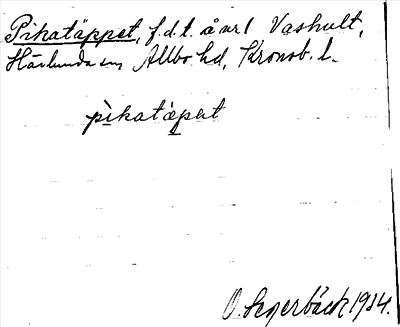 Pikatäppet, f.d.t. å nr 1 Vashult,
Härlunda sn, Allbo hd, Kronob. l.
pìkatä̀pət
O. Segerbäck 1934.